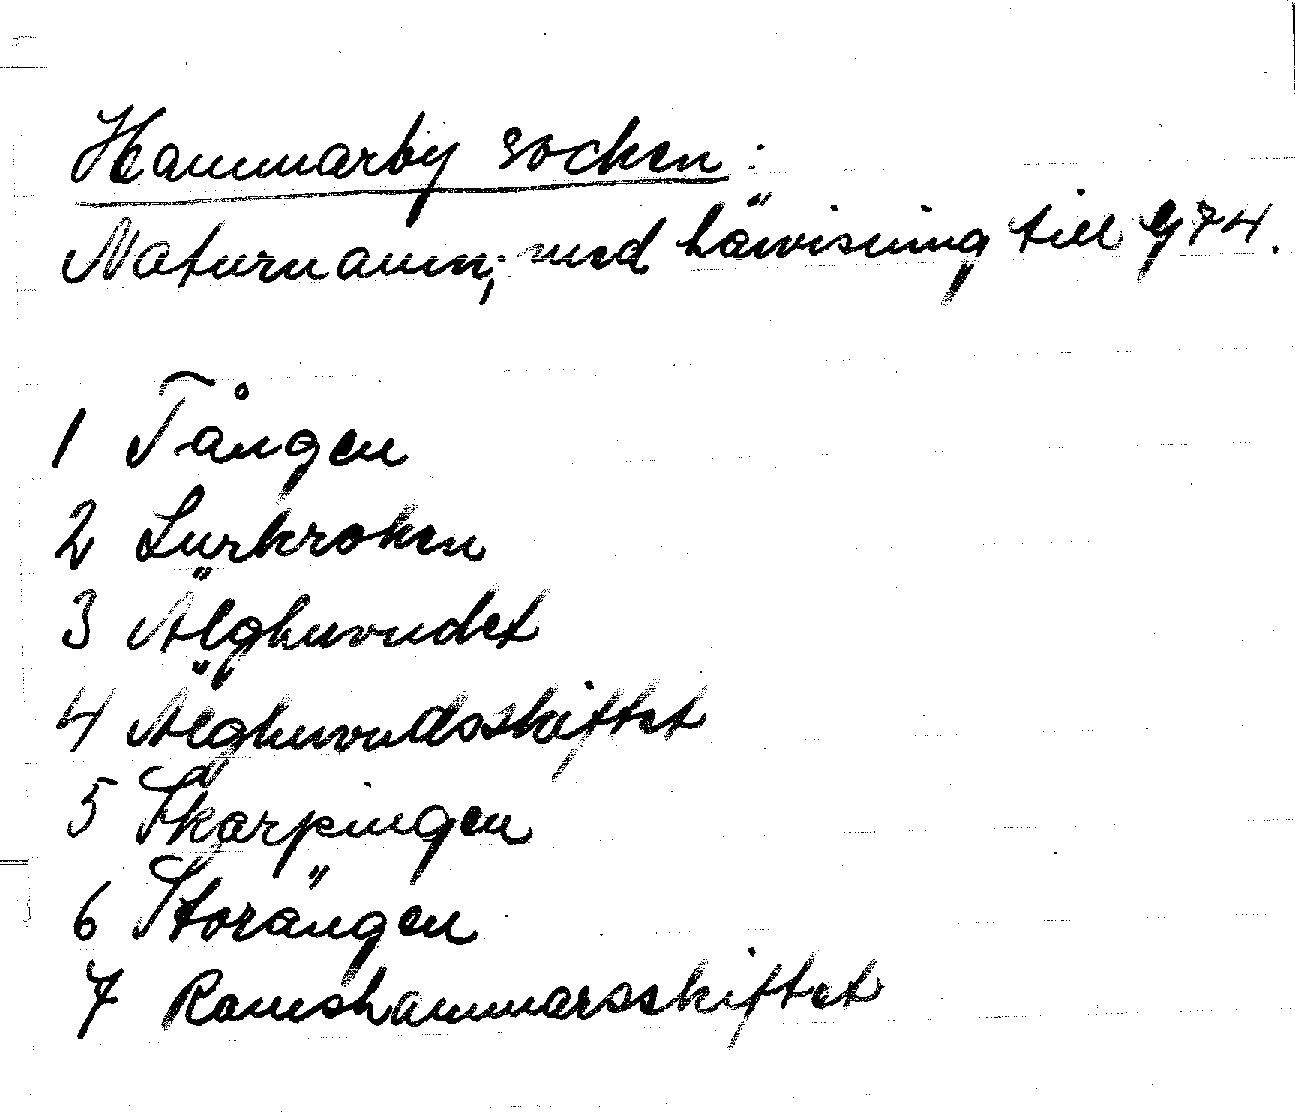 Hammarby socken:
Naturnamn; med hänvisning till G 74.
1 Tången
2 Lurkroken
3 Älghuvudet
4 Älghuvudsskiftet
5 Skarpingen
6 Storängen
7 Ramshammarsskiftet